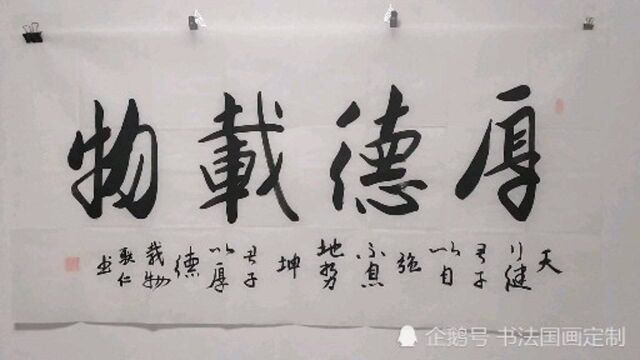 厚德載物
天
行健
君子
以自
强
不息
地势
坤
君子
以厚
德
载物
耿仁
书
企鹅号 书法国画定制